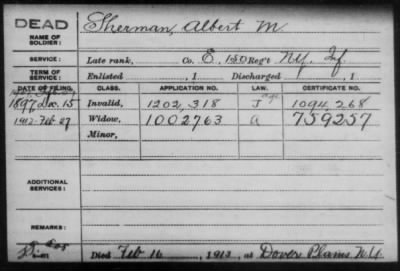 DEAD
NAME OF SOLDIER:
Sherman, Albert M.
SERVICE:
Late rank, Co. E, 150 Reg't N.Y. Inf
TERM OF SERVICE:
Enlisted , 1 Discharged , 1
DATE OF FILING. CLASS. APPLICATION NO. LAW. CERTIFICATE NO.
1897, Dec. 15 Invalid, 1202,318 J 1094,268
1913-Feb-27 Widow, 1002763 a 759257
Minor,
ADDITIONAL SERVICES:
REMARKS:
Died Feb 16, 1913, at Dover Plains N.Y.